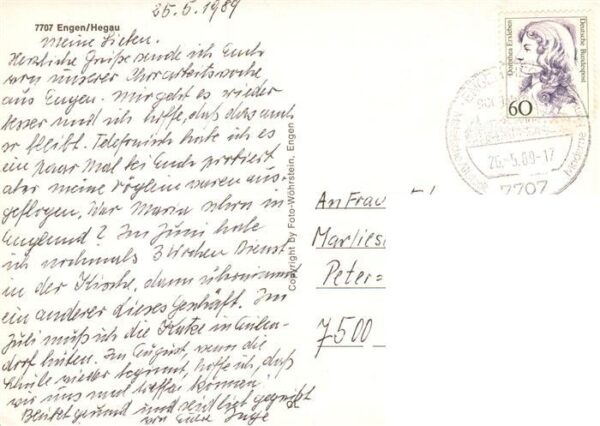 25.5.1989
7707 Engen/Hegau
Meine Lieben.
Herzliche Grüße sende ich Euch
von unserer Chorarbeitswoche
aus Engen. Mir geht es wieder
besser und ich hoffe, daß das auch
so bleibt. Telefonisch habe ich es
ein paar Mal bei Euch probiert
aber meine Vöglein waren aus-
geflogen. War Maria schon in
England? Im Juni habe
ich nochmals 3 Wochen Dienst
in der Kirche, dann übernimmt
ein anderer dieses Geschäft. Im
Juli muß ich die Katze in Eulen-
dorf hüten. Im August, wenn die
Schule wieder beginnt, hoffe ich, daß
wir uns mal treffen können.
Bleibet gesund und seid lieb gegrüßt
von Eurer Inge
Copyright by Foto-Wöhrstein, Engen
Dorothea Erxleben
Deutsche Bundespost
60
26.-5.89-17
7707
An Frau
Marlies
Peter=
7500